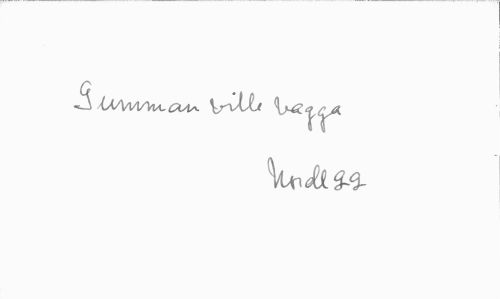 Gumman ville vagga
Nordegg